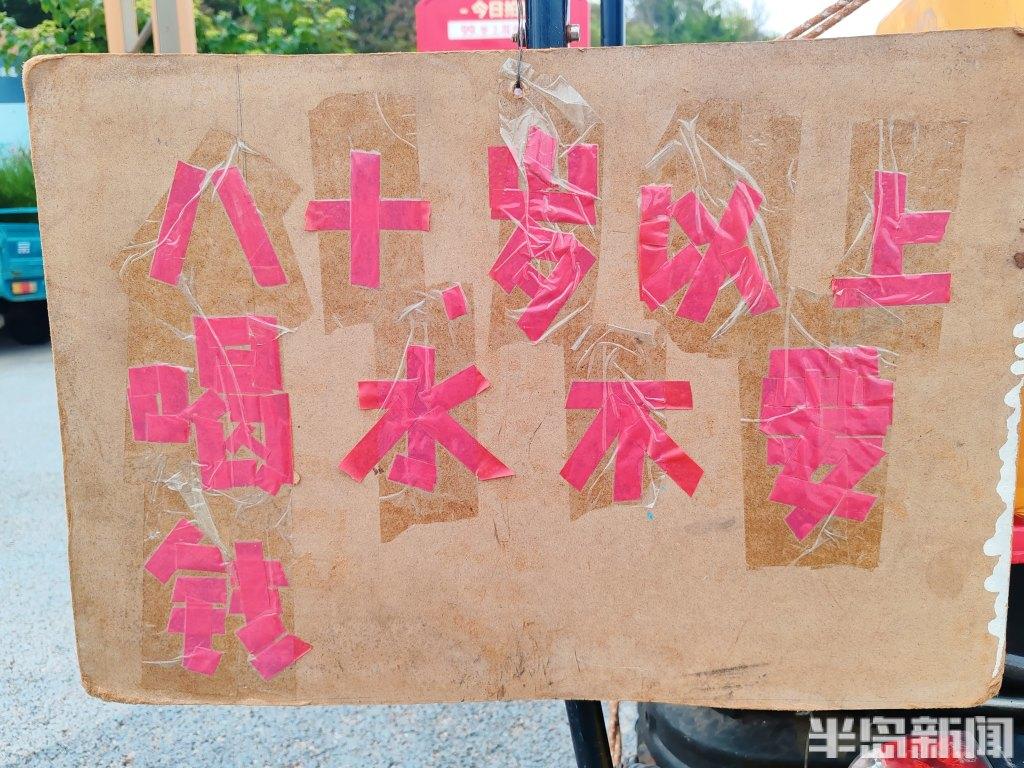 今日拍
八十岁以上
喝水不要
钱
半岛新闻